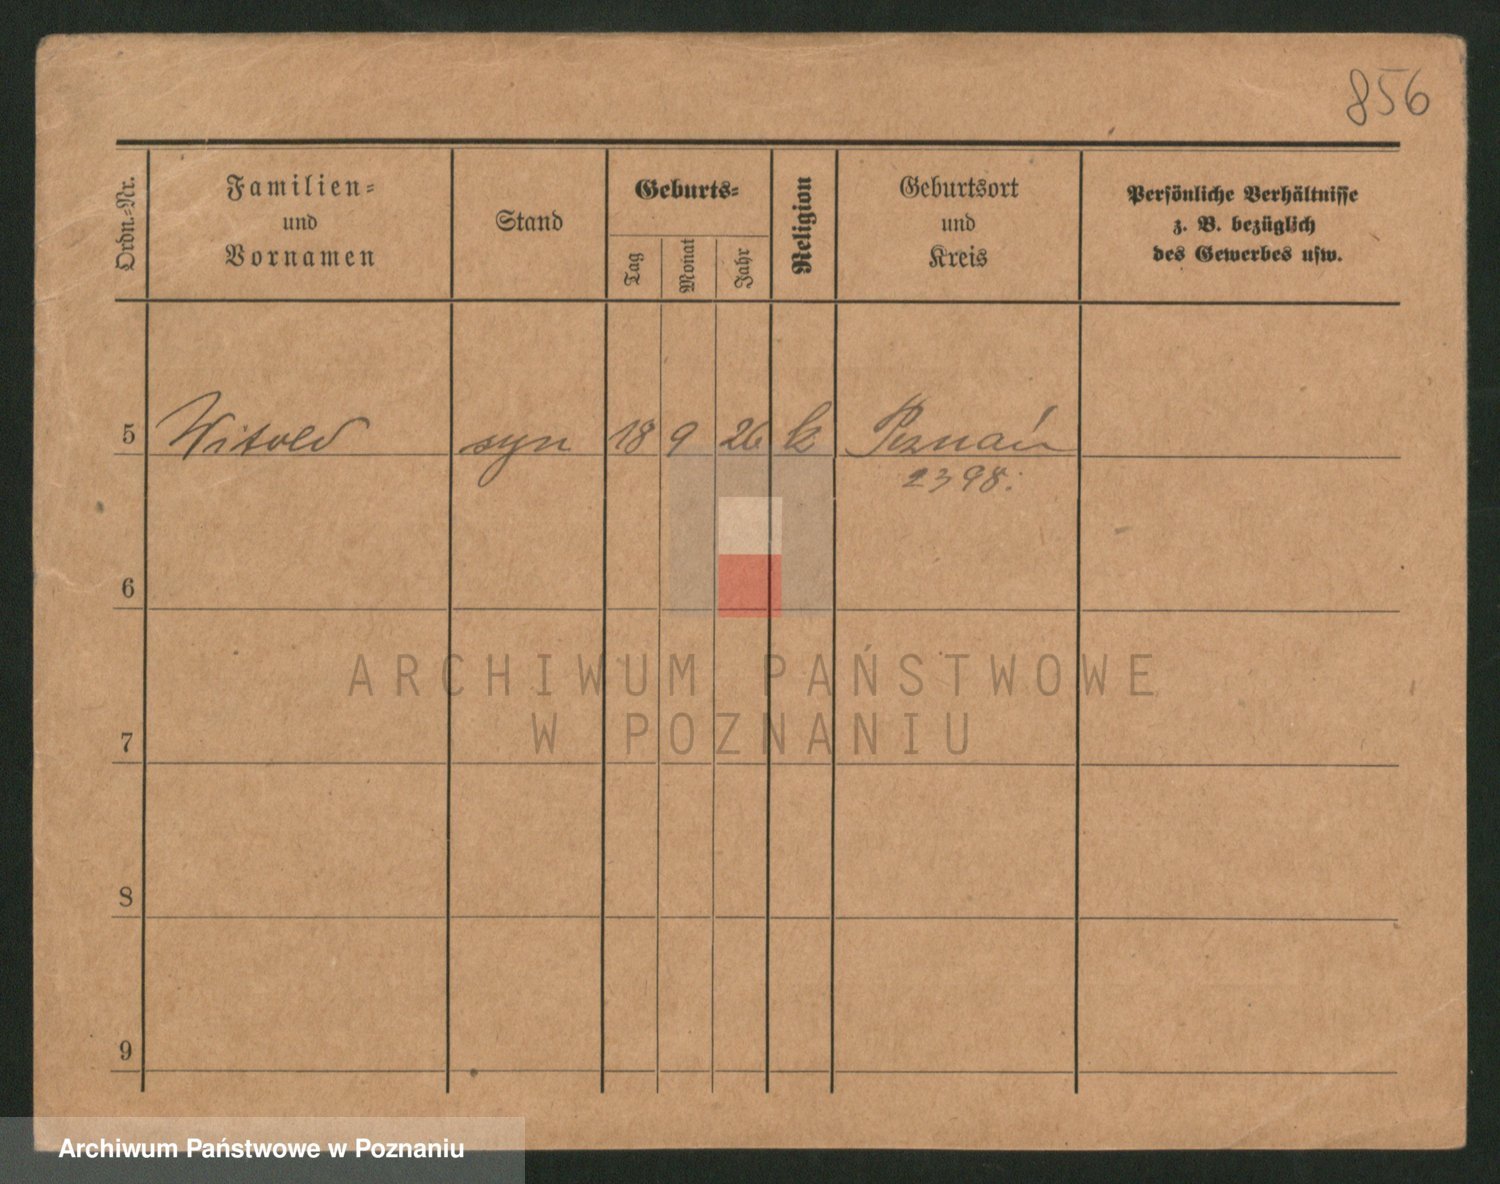 856
Ordn.-Nr.
Familien-
und
Vornamen
Stand
Geburts-
Tag
Monat
Jahr
Religion
Geburtsort
und
Kreis
Persönliche Verhältnisse
z. B. bezüglich
des Gewerbes usw.
5 Witold syn 18 9 26 k Poznań
2398.
6
ARCHIWUM PAŃSTWOWE
W POZNANIU
7
8
9
Archiwum Państwowe w Poznaniu